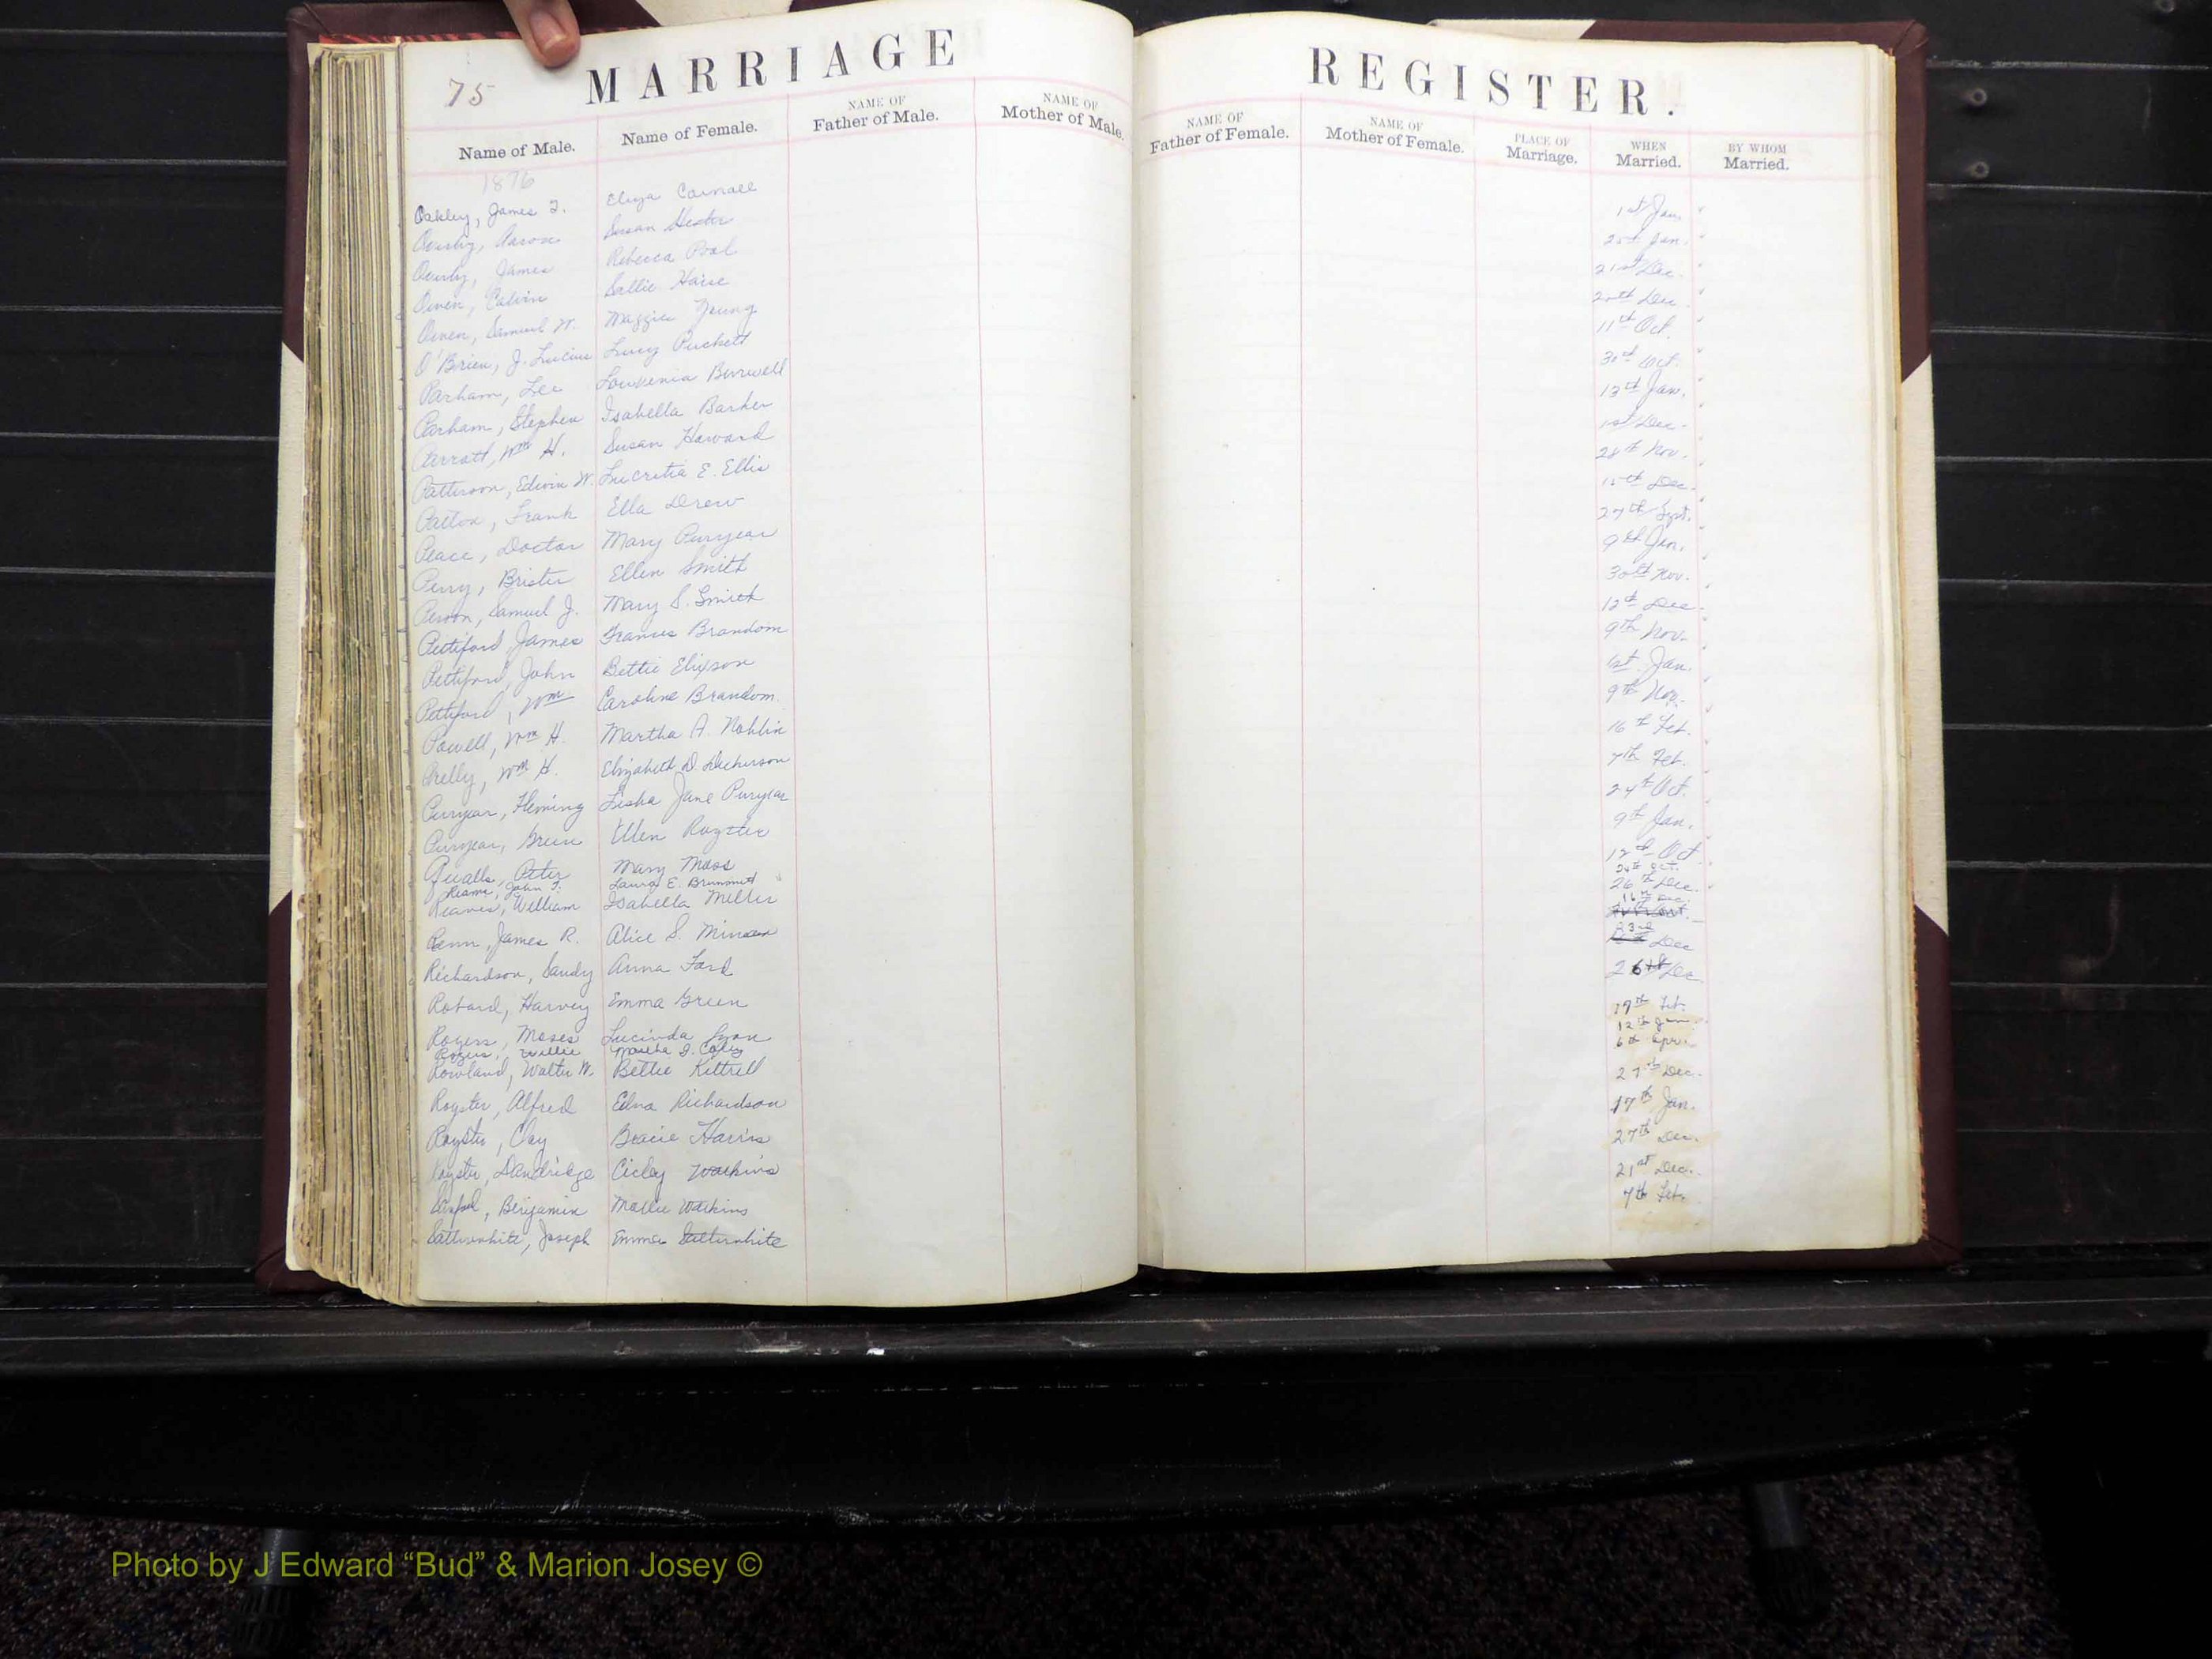 75
MARRIAGE REGISTER.
Name of Male. Name of Female. NAME OF Father of Male. NAME OF Mother of Male. NAME OF Father of Female. NAME OF Mother of Female. PLACE OF Marriage. WHEN Married. BY WHOM Married.
1876
Oakley, James Eliza 1st Jan.
Overby, Aaron Susan Hester Jan.
Overby, James Rebecca Pool 21st Dec.
Owen, Calvin Sallie Dec.
Owen, Samuel W. Maggie Young 11th Oct.
O'Brien, J. Lucius Lucy Puckett Oct.
Parham, Lee Louvenia Burwell 13th Jan.
Parham, Stephen Isabella Barker 1st Dec.
Parrott, Wm H. Susan Howard 28th Nov.
Patterson, Edwin W. Lucretia E. Ellis 15th Dec.
Patton, Frank Ella Drew 27th Sept.
Peace, Doctor Mary Puryear 9th Jan.
Perry, Brister Ellen Smith 30th Nov.
Person, Samuel J. Mary S. Smith Dec.
Pettiford James Frances Brandom 9th Nov.
Pettiford, John Bettie Elixson 1st Jan.
Pettiford, Wm Caroline Brandom. 9th Nov.
Powell, Wm H. Martha A. Noblin 16th Feb.
Prelly, Wm H. Elizabeth D. Dickerson 7th Feb.
Puryear, Fleming Lisha Jane Puryear 24th Oct.
Puryear, Green Ellen Royster 9th Jan.
Qualls, Peter Mary Moss 12th Oct
Reams, John Laura E. Brummitt
Reaves, William Isabella Miller 26th Dec.
Renn, James R. Alice S. Dec
Richardson, Sandy Anna Ford 26
Robard, Harvey Emma Green 19th Feb.
Rogers, Moses Lucinda Lyon 12th Jan.
Rogers, Willie Martha
Rowland, Walter W. Bettie Kittrell 27th Dec.
Royster, Alfred Edna Richardson 17th Jan.
Royster, Clay Harris 27th Dec.
Royster, Dandridge Cicley Watkins 21st Dec.
Benjamin Mollie Watkins 7th Feb.
Satterwhite, Joseph Emma Satterwhite
Photo by J Edward “Bud” & Marion Josey ©